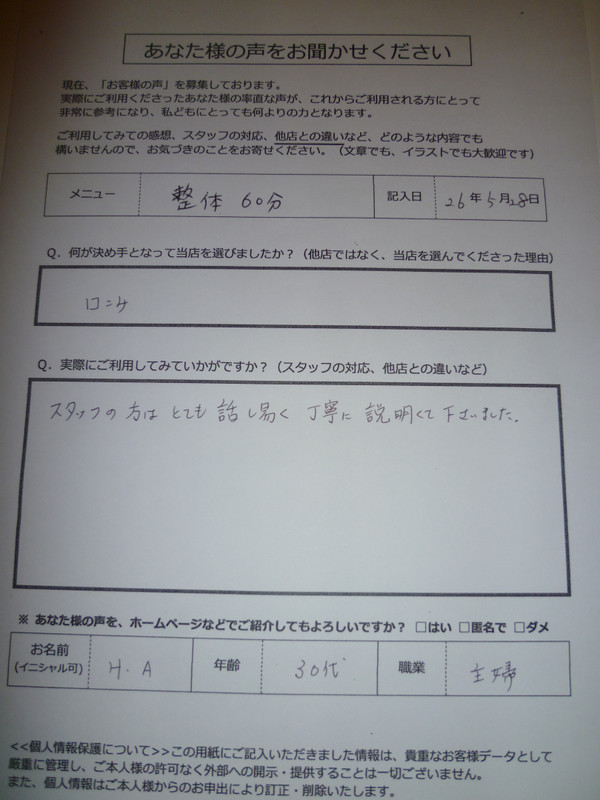 あなた様の声をお聞かせください
現在、「お客様の声」を募集しております。
実際にご利用くださったあなた様の率直な声が、これからご利用される方にとって
非常に参考になり、私どもにとっても何よりの力となります。
ご利用してみての感想、スタッフの対応、他店との違いなど、どのような内容でも
構いませんので、お気づきのことをお寄せください。（文章でも、イラストでも大歓迎です）
メニュー 整体 60分 記入日 26年5月28日
Q．何が決め手となって当店を選びましたか？（他店ではなく、当店を選んでくださった理由）
口コミ
Q．実際にご利用してみていかがですか？（スタッフの対応、他店との違いなど）
スタッフの方は とても 話し易く 丁寧に 説明くて 下さいました。
※ あなた様の声を、ホームページなどでご紹介してもよろしいですか？ □はい □匿名で □ダメ
お名前
(イニシャル可) H．A 年齢 30代 職業 主婦
<<個人情報保護について>>この用紙にご記入いただきました情報は、貴重なお客様データとして
厳重に管理し、ご本人様の許可なく外部への開示・提供することは一切ございません。
また、個人情報はご本人様からのお申出により訂正・削除いたします。